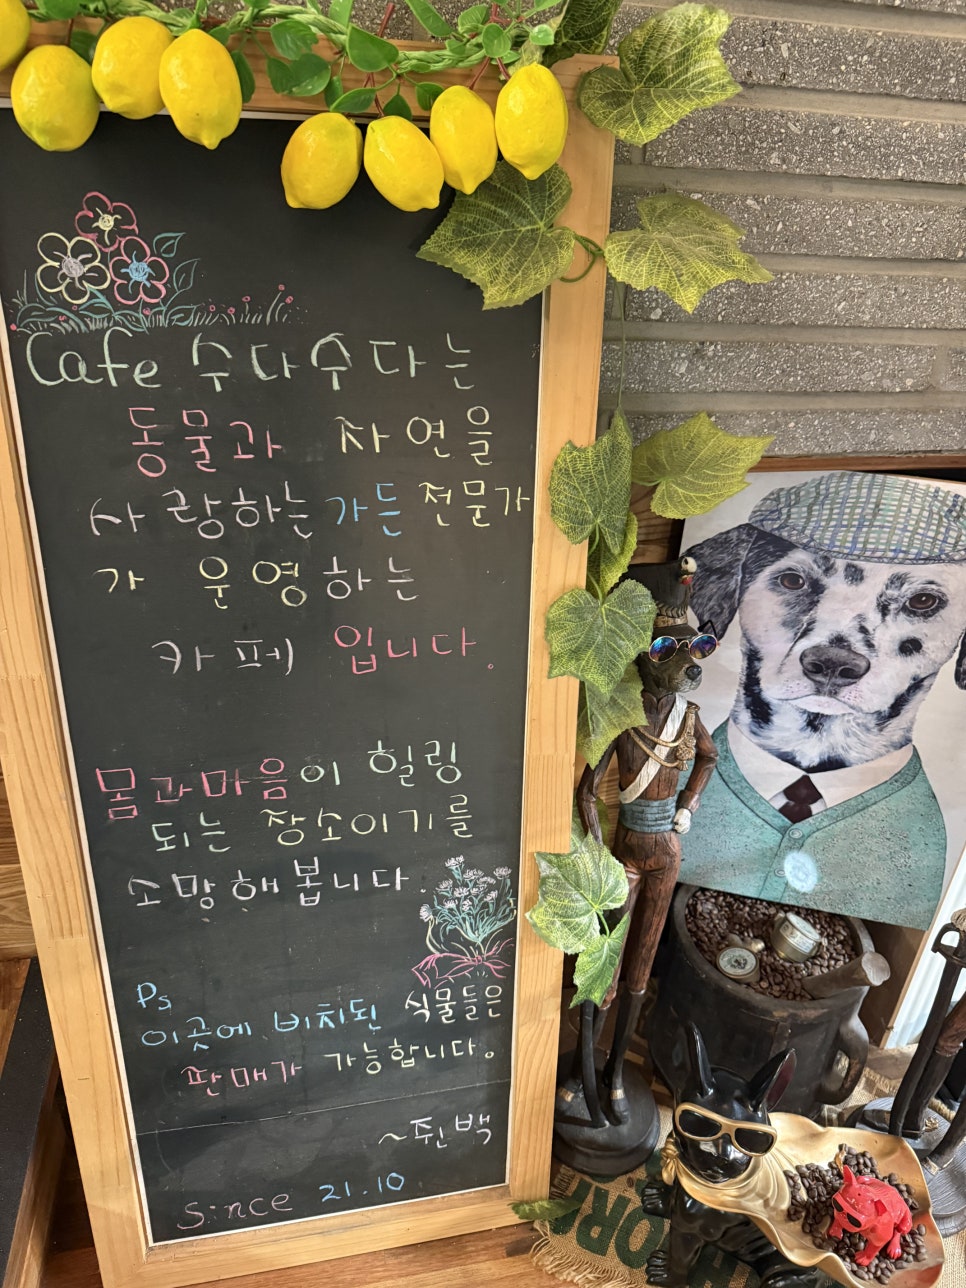 Cafe 수다수다는
동물과 자연을
사랑하는 가든 전문가
가 운영하는
카페 입니다.
몸과마음이 힐링
되는 장소이기를
소망해봅니다.
Ps
이곳에 비치된 식물들은
판매가 가능합니다.
~쥔백
Since 21.10.